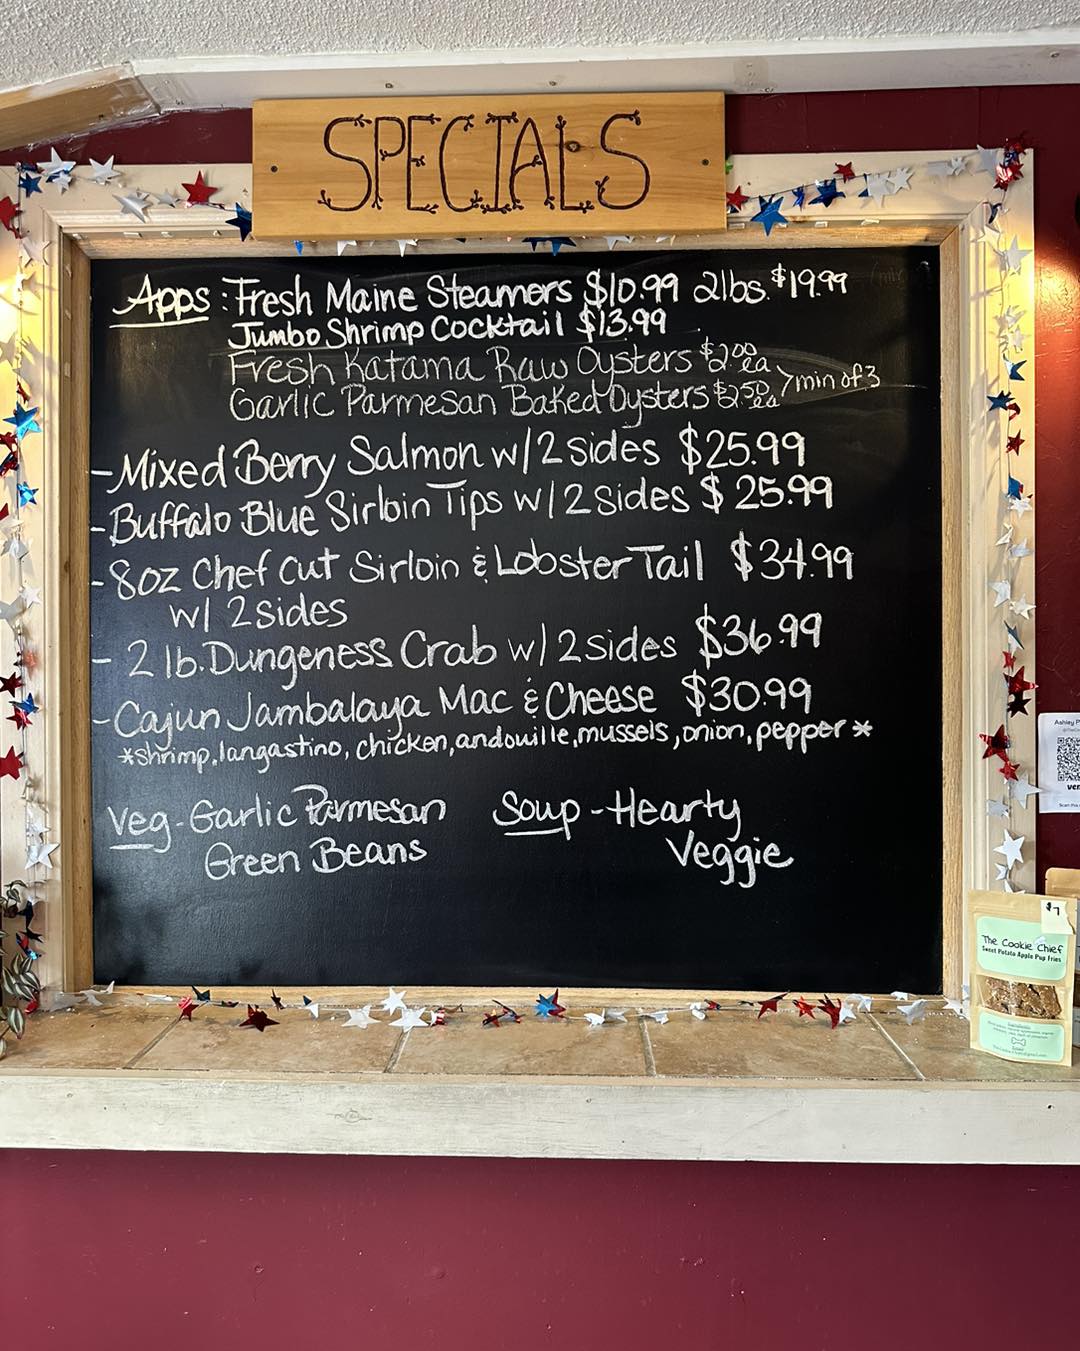 SPECIALS
Apps: Fresh Maine Steamers $10.99 2lbs. $19.99
Jumbo Shrimp Cocktail $13.99
Fresh Katama Raw Oysters $2.00 ea
Garlic Parmesan Baked Oysters $2.50 ea > min of 3
- Mixed Berry Salmon w/ 2 sides $25.99
- Buffalo Blue Sirloin Tips w/ 2 sides $25.99
- 8oz Chef Cut Sirloin & Lobster Tail $34.99
w/ 2 sides
- 2 lb. Dungeness Crab w/ 2 sides $36.99
- Cajun Jambalaya Mac & Cheese $30.99
*shrimp, langastino, chicken, andouille, mussels, onion, pepper*
Veg - Garlic Parmesan
Green Beans
Soup - Hearty
Veggie
Ashley P
ven
$7
The Cookie Chief
Sweet Potato Apple Pup Fries